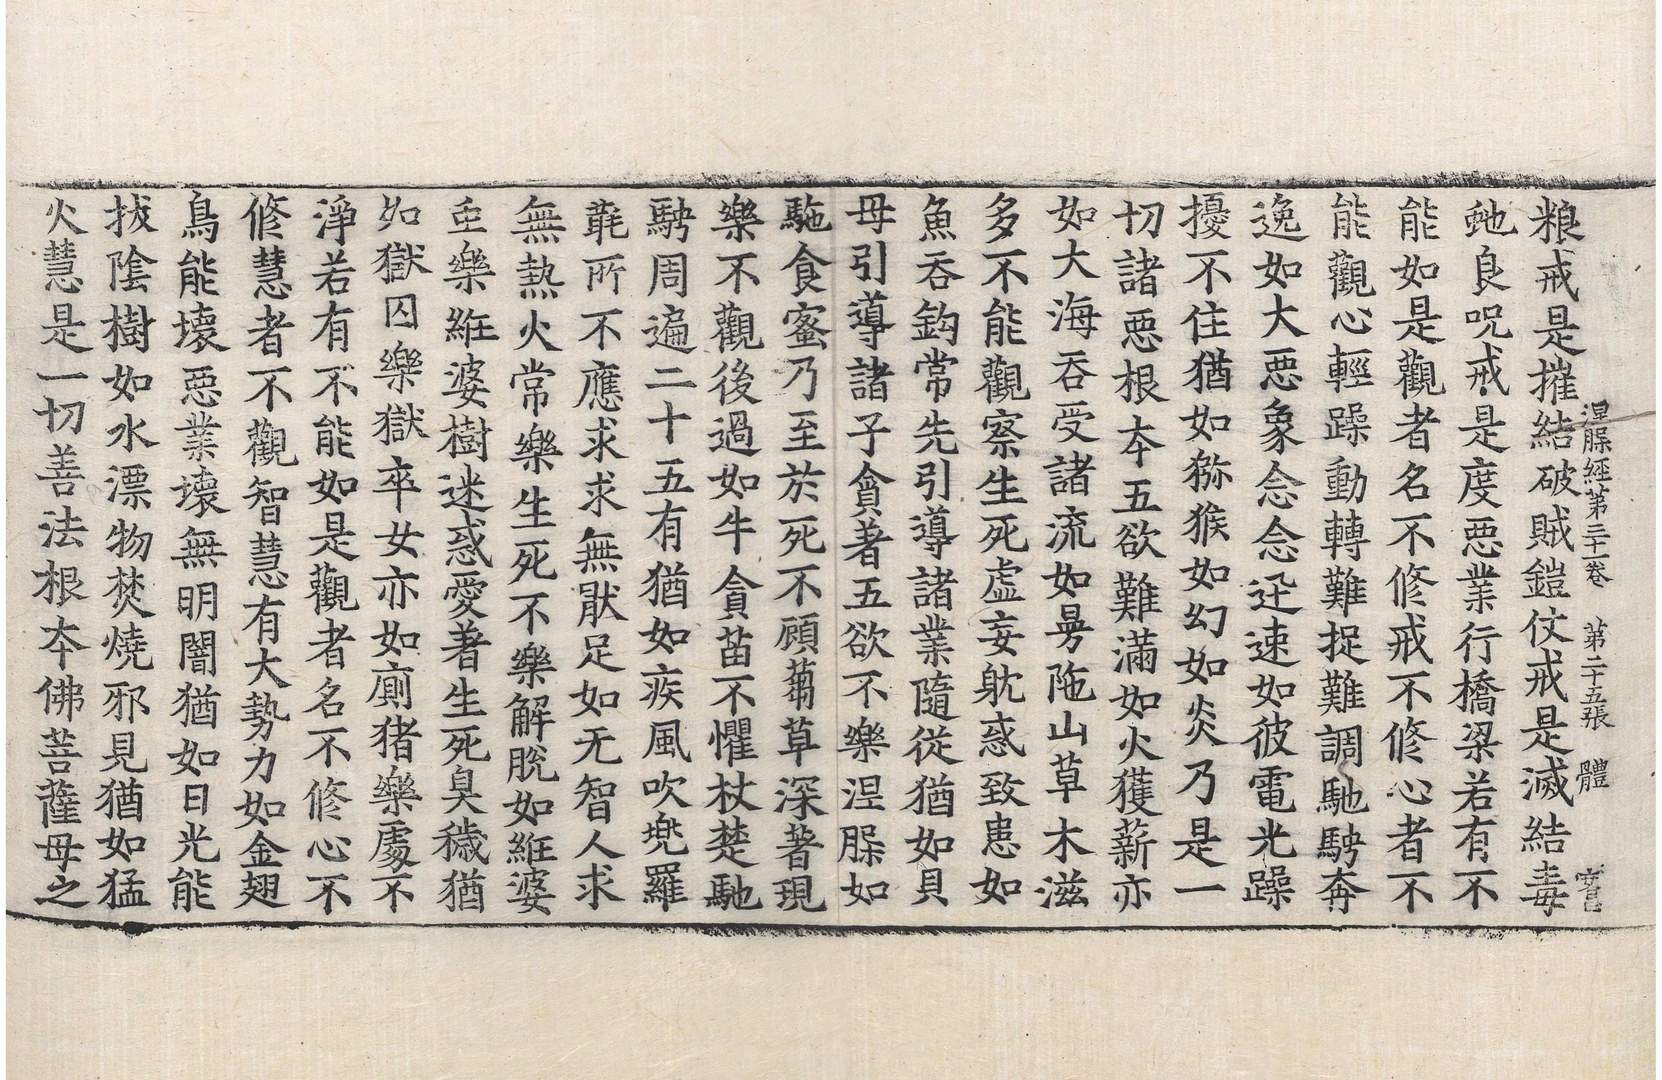 粮戒是摧結破賊鎧仗戒是滅結毒
涅脲經苐三十一卷　苐二十五張　體
虵良呪戒是度惡業行橋梁若有不
能如是觀者名不修戒不修心者不
能觀心輕躁動轉難捉難調馳騁奔
逸如大惡象念念迅速如彼電光躁
擾不住猶如猕猴如幻如炎乃是一
切諸惡根本五欲難滿如火獲薪亦
如大海吞受諸流如㬅陁山草木滋
多不能觀察生死虛妄躭惑致患如
魚吞鈎常先引導諸業隨從猶如貝
母引導諸子貪著五欲不樂涅脲如
駞食蜜乃至於死不顧蒭草深著現
樂不觀後過如牛貪苗不懼杖楚馳
騁周遍二十五有猶如疾風吹兠羅
毦所不應求求無猒足如无智人求
無熱火常樂生死不樂解脫如絍婆
䖝樂絍婆樹迷惑愛著生死臭穢猶
如獄囚樂獄卒女亦如廁猪樂處不
淨若有不能如是觀者名不修心不
修慧者不觀智慧有大勢力如金翅
鳥能壞惡業壞無明闇猶如日光能
拔陰樹如水漂物焚燒邪見猶如猛
火慧是一切善法根本佛菩薩母之